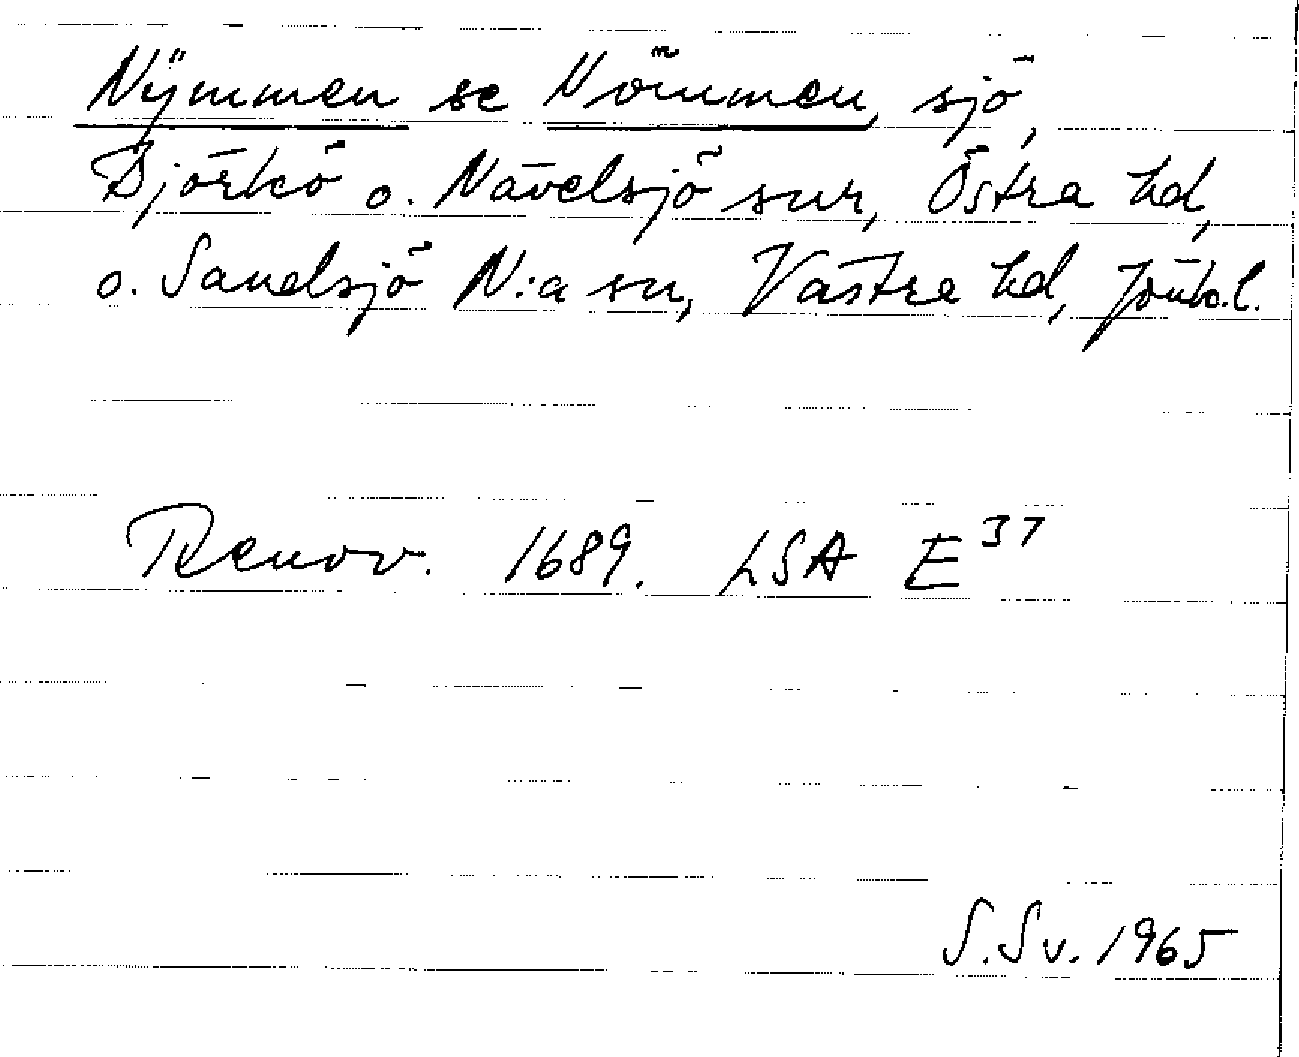 Nÿmmen se Nömmen, sjö,
Björkö o. Nävelsjö snr, Östra hd,
o. Sandsjö N:a sn, Västra hd, Jönk.l.
Renov. 1689. LSA E 37
S.Sv. 1965